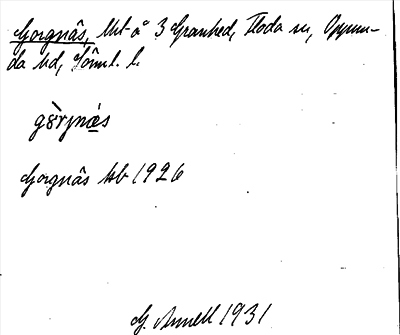 Gorgnäs, Ubt å 3 Granhed, Floda sn, Oppun-
da hd, Söml. l.
gòrjnès
Gorgnäs hb 1926
G. Annell 1931